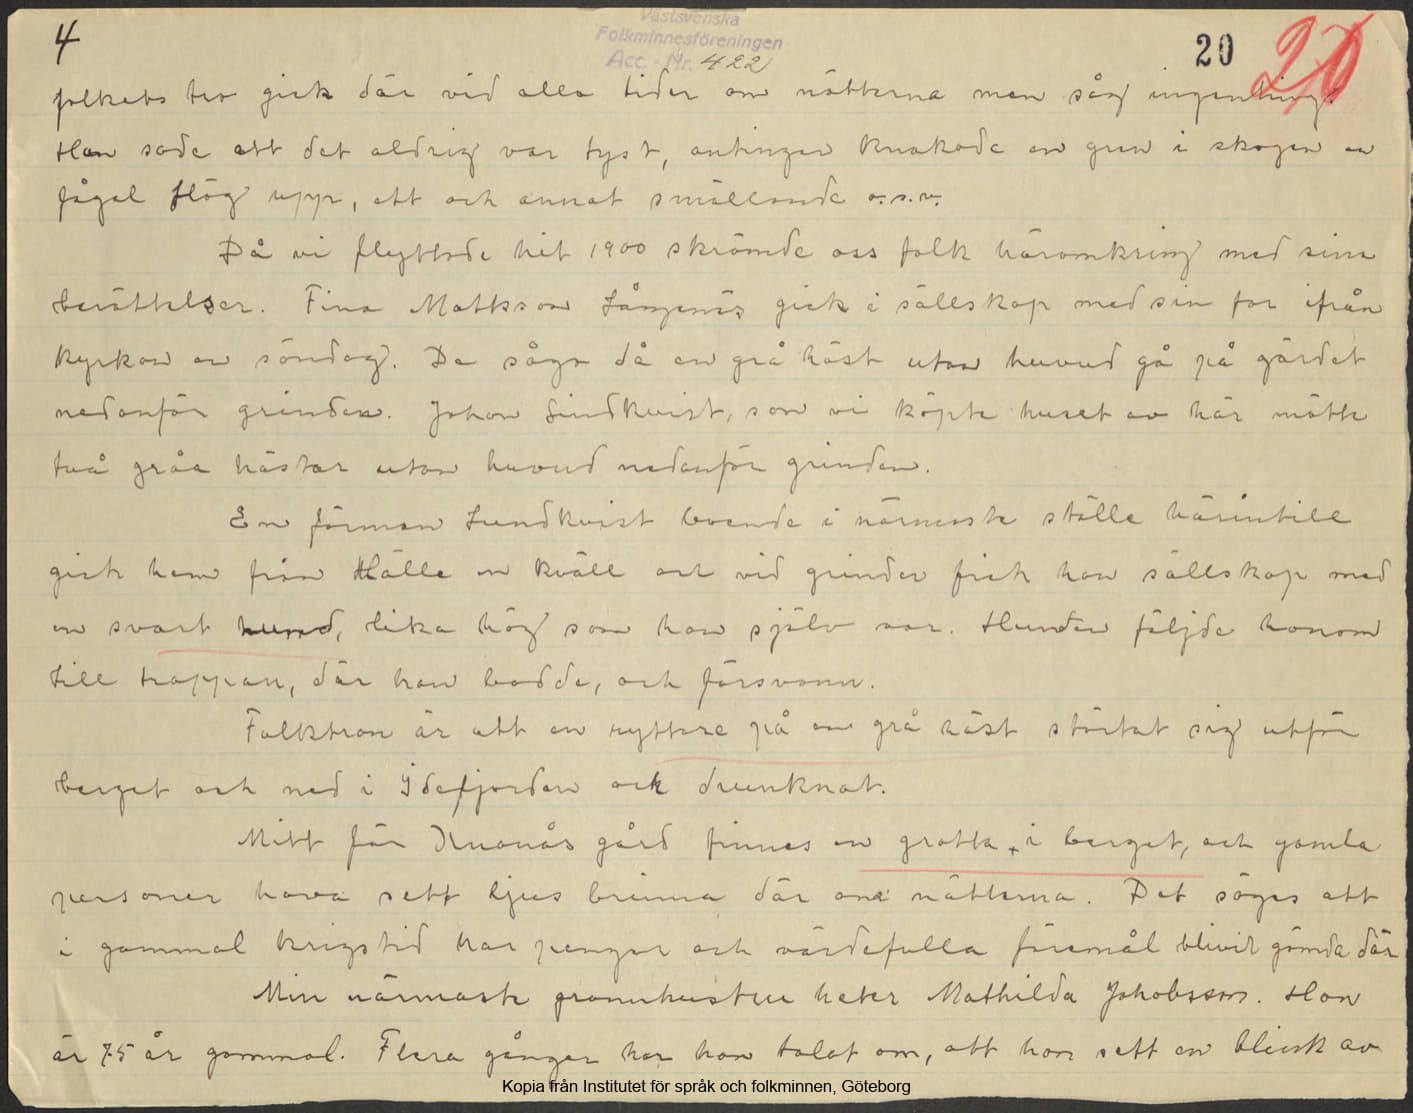 4
Västsvenska
Folkminnesföreningen
Acc. Nr. 422
20
20
folkets tro gick där vid alla tider om nätterna men såg ingenting.
Han sade att det aldrig var tyst, antingen knakade en gren i skogen en
fågel flög upp, ett och annat smällande o.s.v.
Då vi flyttade hit 1900 skrämde oss folk häromkring med sina
berättelser. Fina Mattsson Långenäs gick i sällskap med sin far ifrån
kyrkan en söndag. De sågo då en grå häst utan huvud gå på gärdet
nedanför grinden. Johan Lindkvist, som vi köpte huset av här mötte
två gråa hästar utan huvud nedanför grinden.
En förman Lundkvist boende i närmaste ställe härintill
gick hem från Hälle en kväll och vid grinden fick han sällskap med
en svart hund, lika hög som han själv var. Hunden följde honom
till trappan, där han bodde, och försvann.
Folktron är att en ryttare på en grå häst störtat sig utför
berget och ned i Idefjorden och drunknat.
Mitt för Knanås gård finnes en grotta i berget, och gamla
personer hava sett ljus brinna där om nätterna. Det säges att
i gammal krigstid har pengar och värdefulla föremål blivit gömda där
Min närmaste grannhustru heter Mathilda Jakobsson. Hon
är 75 år gammal. Flera gånger har hon talat om, att hon sett en blink av
Kopia från Institutet för språk och folkminnen, Göteborg